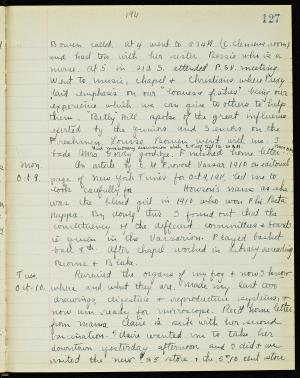 194
127
Bowen called, at 4 went to 834 H. (C. Clemens' room)
and had tea with her sister Bessie who is a
nurse. At 5 in 213 S. attended P.S.V. meeting.
Went to music, chapel & Christians where Prexy
laid emphasis on our "oneness of ideas" being our
experience which we can give to others to help
them. Betty Hill spoke of the great influence
exerted by the Juniors and Seniors on the
Freshmen. Louise Bowen went with me &
bade Mrs. Gray goodbye. Finished home letter
Mon.
Oct. 9.
An article of E. M. Provost Vassar 1910 on editorial
page of New York Times for Oct 9, 1911, led me to
look carefully for Howson's name as she
was the blind girl in 1910 who won Phi Beta
Kappa. By doing this I found out that the
constituency of the different committees & boards
is given in the Vassarion. Played basket
ball 8th. After chapel worked in Library reading
Browne & Blake.
Tues.
Oct. 10.
Reviewed the organs of my frog & now I know
where and what they are. Made my last two
drawings, digestive & reproductive systems, &
now am ready for microscope. Rec'd home letter
from mama. Claire is sick with her second
vaccination. Claire wanted me to take her
downtown yesterday afternoon and I did & we
visited the new 25 store & the 5/10 cent store